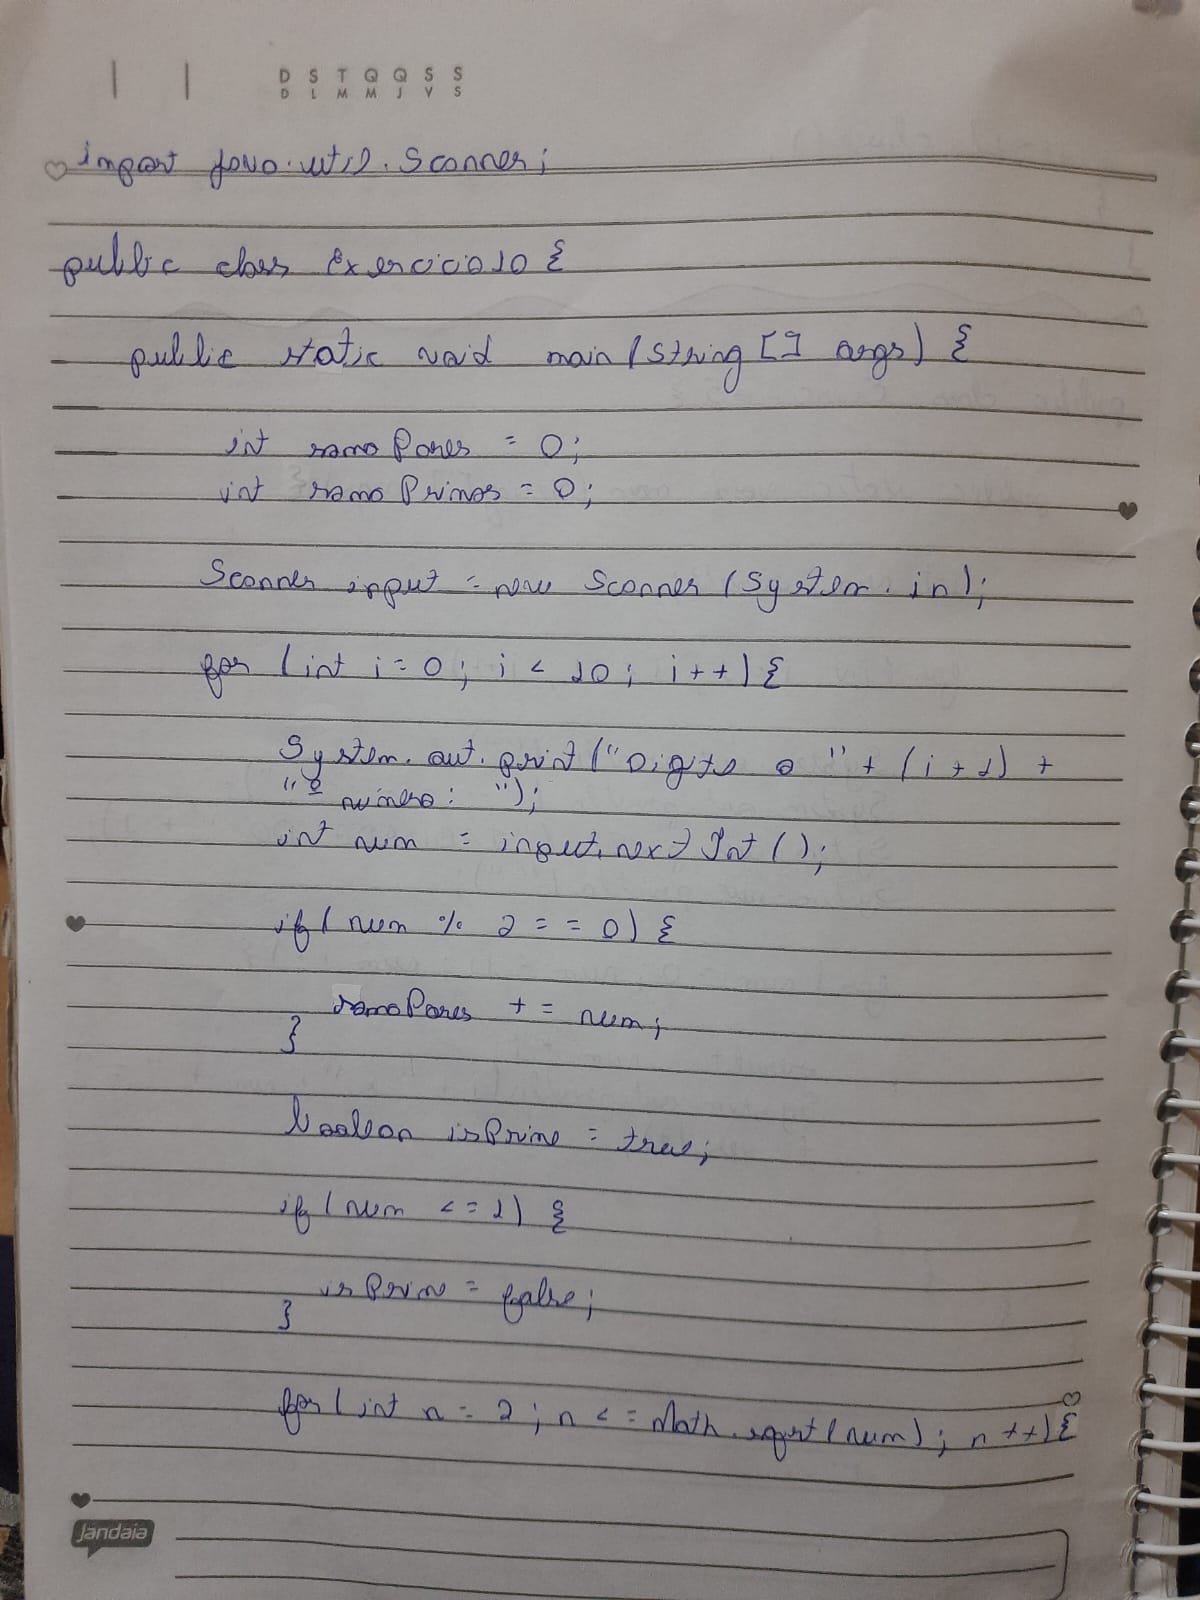 D S T Q Q S S
D L M M J V S
import java.util.Scanner;
public class Exercicio10 {
public static void main(String[] args) {
int somaPares = 0;
int somaPrimos = 0;
Scanner input = new Scanner(System.in);
for (int i = 0; i < 10; i++) {
System.out.print("Digite o " + (i + 1) +
"º número: ");
int num = input.nextInt();
if (num % 2 == 0) {
somaPares += num;
}
boolean isPrime = true;
if (num <= 1) {
isPrime = false;
}
for (int n = 2; n <= Math.sqrt(num); n++) {
Jandaia